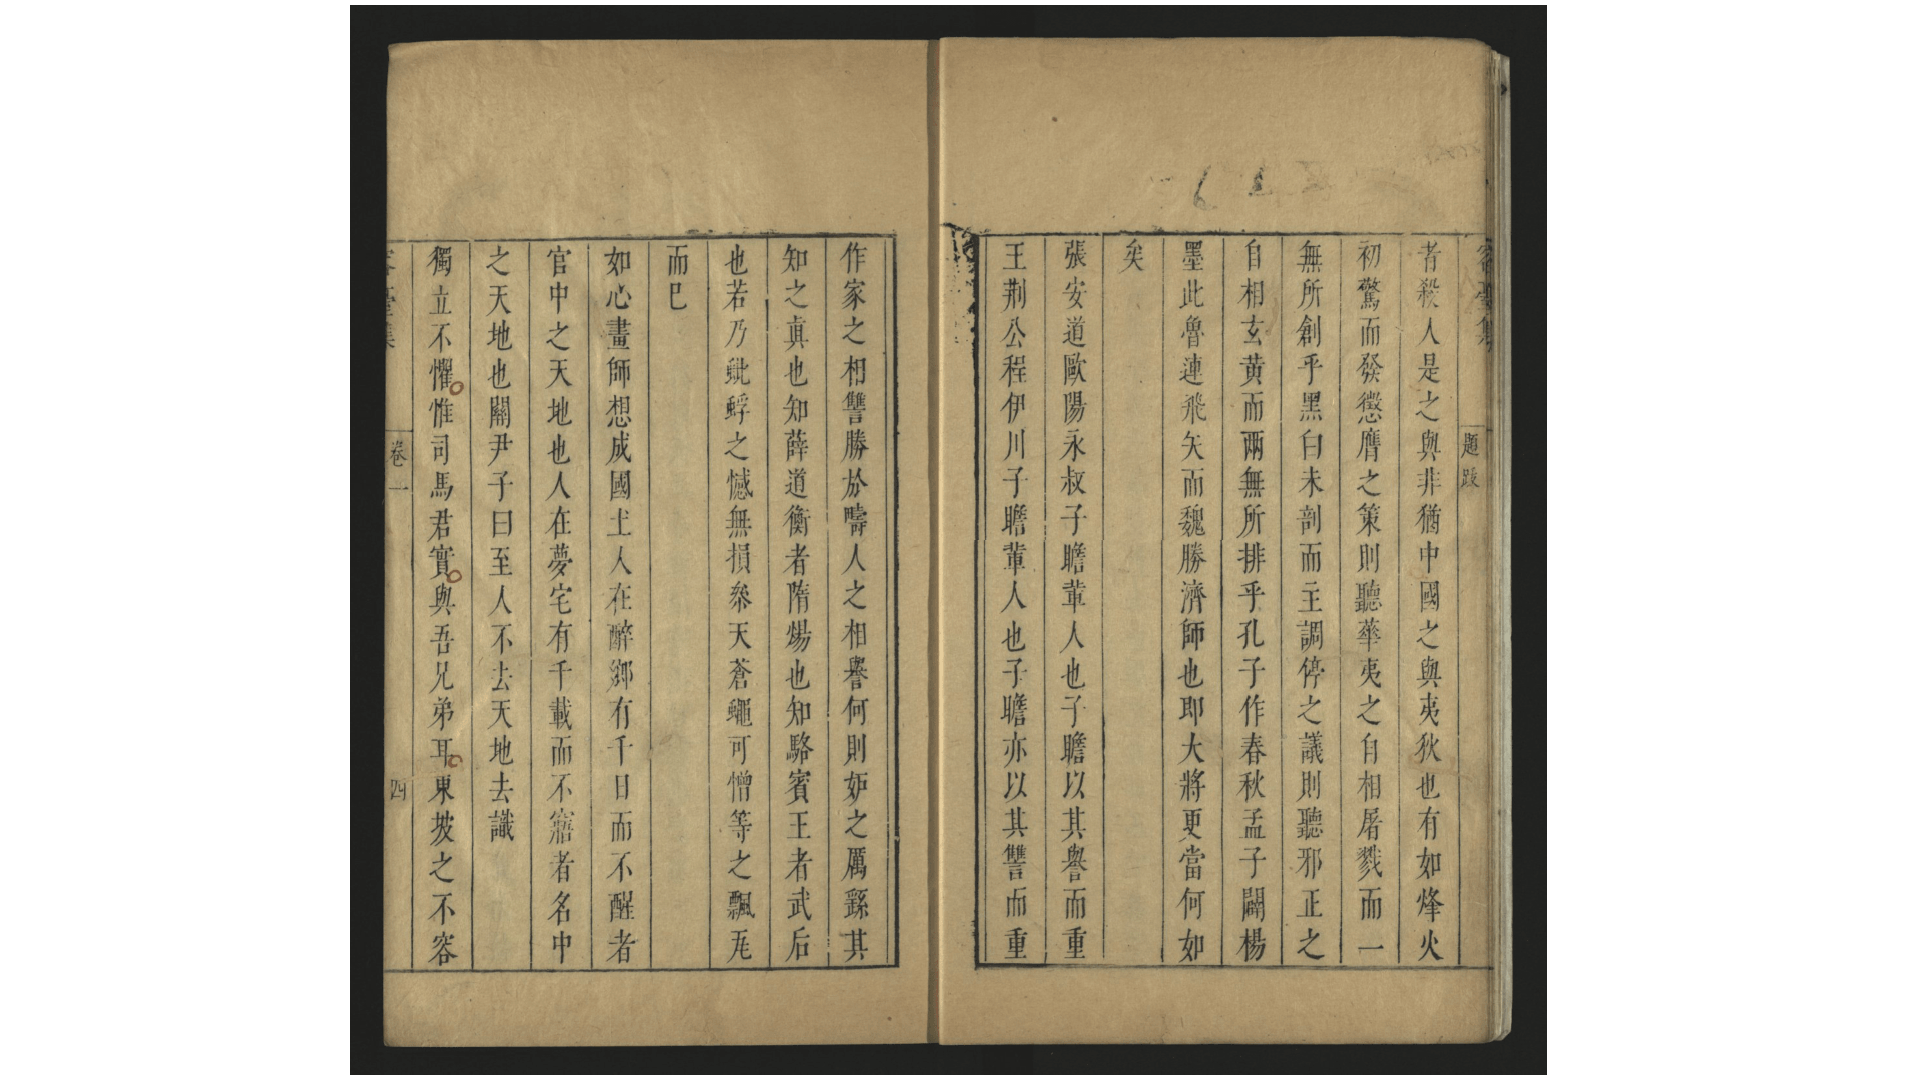 容臺集
題跋
者殺人是之與非猶中國之與夷狄也有如烽火
初驚而發懲膺之策則聽華夷之自相屠戮而一
無所創乎黑白未剖而主調停之議則聽邪正之
自相玄黄而兩無所排乎孔子作春秋孟子闢楊
墨此魯連飛矢而魏勝濟師也即大將更當何如
矣
張安道歐陽永叔子瞻輩人也子瞻以其譽而重
王荆公程伊川子瞻輩人也子瞻亦以其讐而重
作家之相讐勝於疇人之相譽何則妒之厲繇其
知之真也知薛道衡者隋煬也知駱賓王者武后
也若乃蚍蜉之憾無損叅天蒼蠅可憎等之飄瓦
而已
如心畫師想成國土人在醉鄉有千日而不醒者
官中之天地也人在夢宅有千載而不寤者名中
之天地也關尹子曰至人不去天地去識
獨立不懼惟司馬君實與吾兄弟耳東坡之不容
容臺集
卷一
四